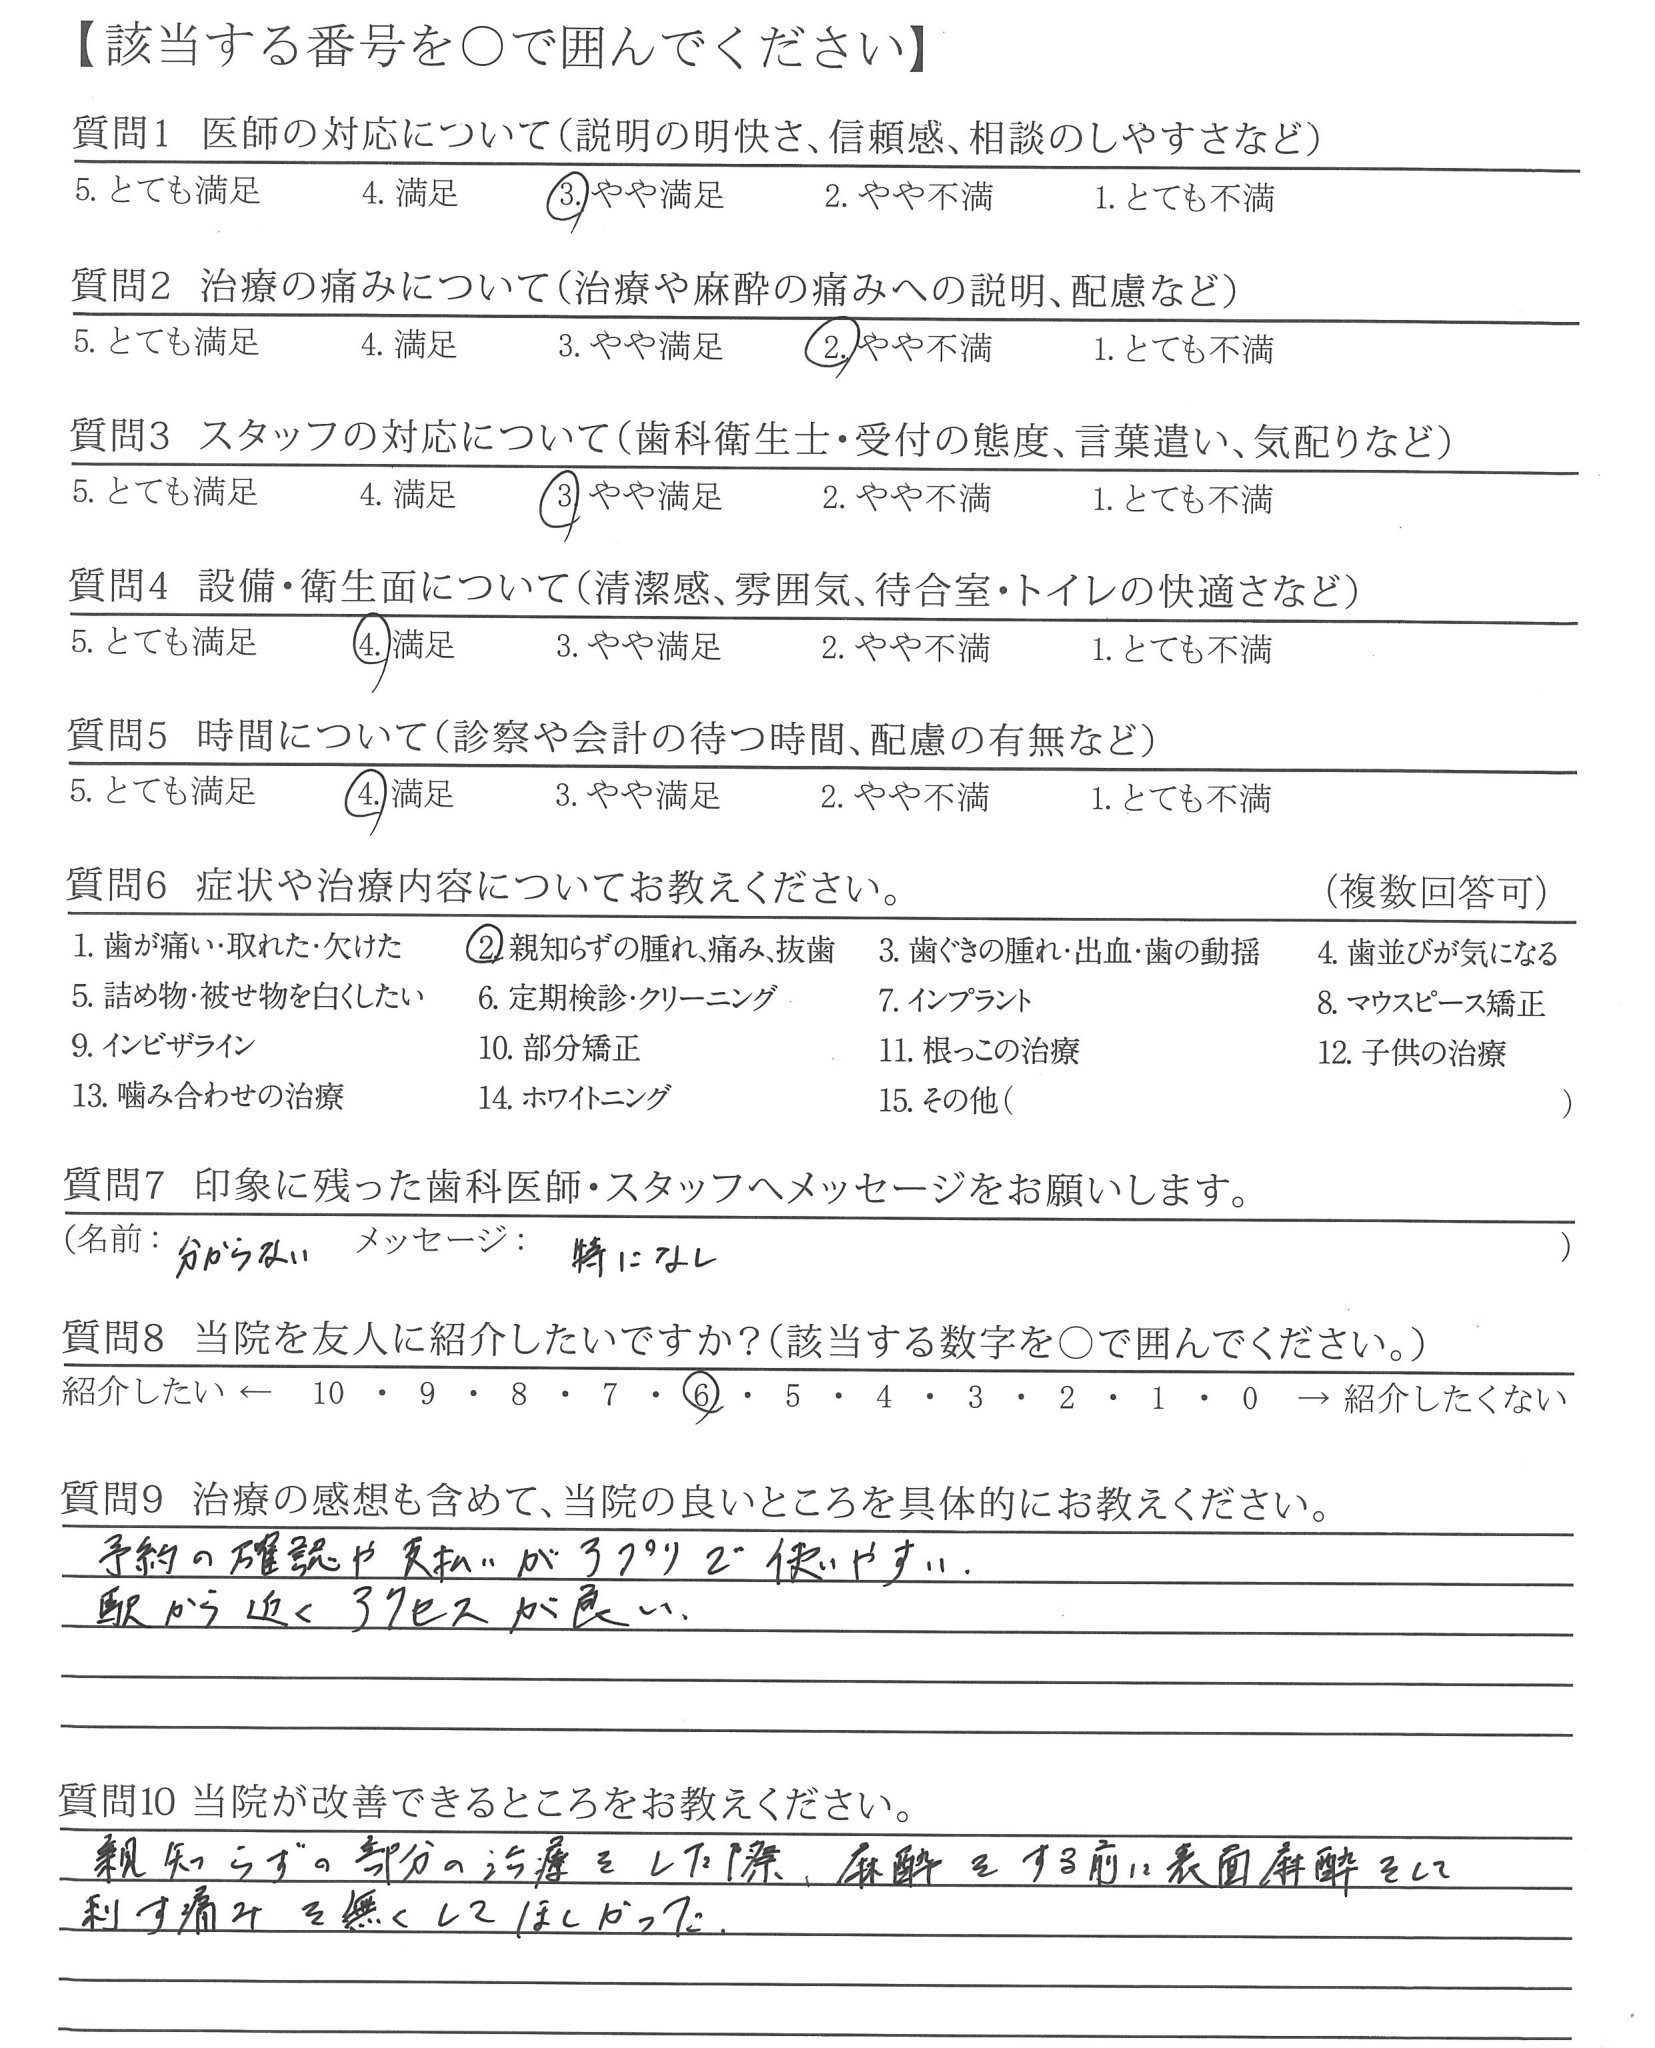 【該当する番号を〇で囲んでください】
質問1 医師の対応について(説明の明快さ、信頼感、相談のしやすさなど)
5. とても満足 4. 満足 3. やや満足 2. やや不満 1. とても不満
質問2 治療の痛みについて(治療や麻酔の痛みへの説明、配慮など)
5. とても満足 4. 満足 3. やや満足 2. やや不満 1. とても不満
質問3 スタッフの対応について(歯科衛生士・受付の態度、言葉遣い、気配りなど)
5. とても満足 4. 満足 3 やや満足 2. やや不満 1. とても不満
質問4 設備・衛生面について(清潔感、雰囲気、待合室・トイレの快適さなど)
5. とても満足 4. 満足 3. やや満足 2. やや不満 1. とても不満
質問5 時間について(診察や会計の待つ時間、配慮の有無など)
5. とても満足 4. 満足 3. やや満足 2. やや不満 1. とても不満
質問6 症状や治療内容についてお教えください。 (複数回答可)
1. 歯が痛い・取れた・欠けた 2. 親知らずの腫れ、痛み、抜歯 3. 歯ぐきの腫れ・出血・歯の動揺 4. 歯並びが気になる
5. 詰め物・被せ物を白くしたい 6. 定期検診・クリーニング 7. インプラント 8. マウスピース矯正
9. インビザライン 10. 部分矯正 11. 根っこの治療 12. 子供の治療
13. 噛み合わせの治療 14. ホワイトニング 15. その他( )
質問7 印象に残った歯科医師・スタッフへメッセージをお願いします。
(名前: 分からない メッセージ: 特になし )
質問8 当院を友人に紹介したいですか?(該当する数字を〇で囲んでください。)
紹介したい ← 10 ・ 9 ・ 8 ・ 7 ・ 6 ・ 5 ・ 4 ・ 3 ・ 2 ・ 1 ・ 0 → 紹介したくない
質問9 治療の感想も含めて、当院の良いところを具体的にお教えください。
予約の確認や支払いがアプリで使いやすい.
駅から近くアクセスが良い.
質問10 当院が改善できるところをお教えください。
親知らずの部分の治療をした際、麻酔をする前に表面麻酔をして
刺す痛みを無くしてほしかった.